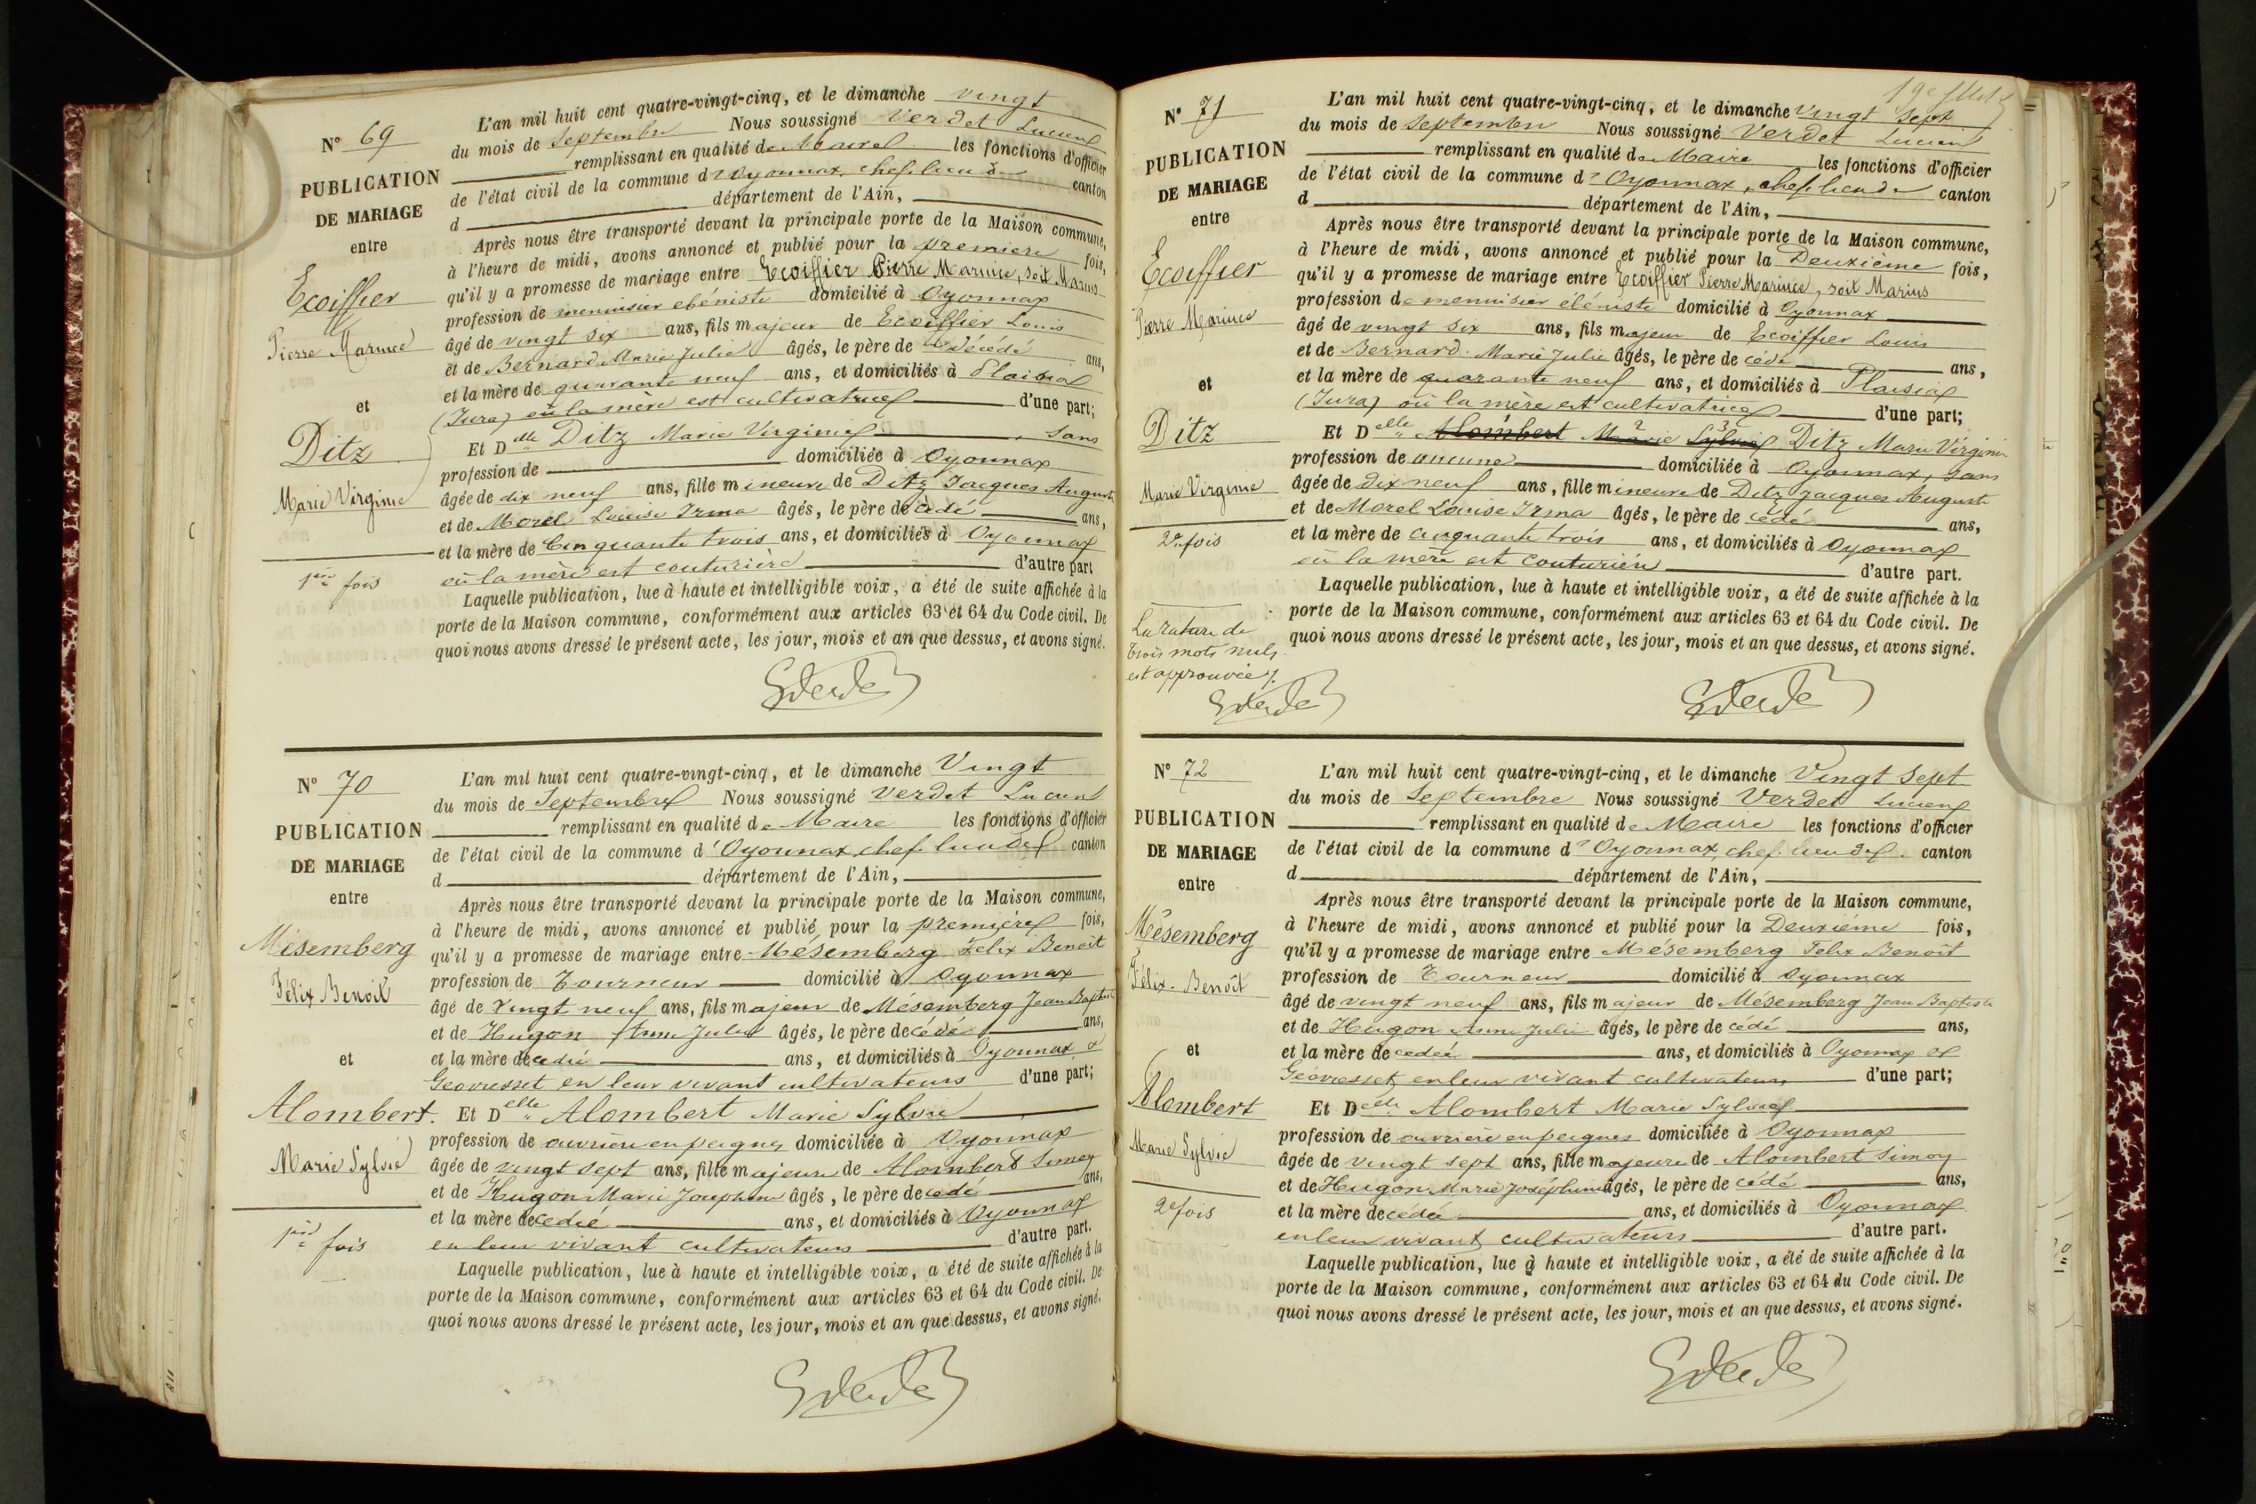 N° 69
PUBLICATION
DE MARIAGE
entre
Ecoiffier
Pierre Marius
et
Ditz
Marie Virginie
1ère fois
L'an mil huit cent quatre-vingt-cinq, et le dimanche vingt
du mois de Septembre Nous soussigné Verdet Lucien
remplissant en qualité de Maire les fonctions d'officier
de l'état civil de la commune d'Oyonnax, chef lieu de canton
d département de l'Ain,
Après nous être transporté devant la principale porte de la Maison commune,
à l'heure de midi, avons annoncé et publié pour la première fois,
qu'il y a promesse de mariage entre Ecoiffier Pierre Marius, soit Marius
profession de menuisier ebéniste domicilié à Oyonnax
âgé de vingt six ans, fils majeur de Ecoiffier Louis
et de Bernard Marie Julie âgés, le père de décédé ans,
et la mère de quarante neuf ans, et domiciliés à Plaisia
(Jura) où la mère est cultivatrice d'une part;
Et Delle Ditz Marie Virginie, sans
profession de domiciliée à Oyonnax
âgée de dix neuf ans, fille mineure de Ditz Jacques Auguste
et de Morel Louise Irma âgés, le père de cédé ans,
et la mère de Cinquante trois ans, et domiciliés à Oyonnax
où la mère est couturière d'autre part
Laquelle publication, lue à haute et intelligible voix, a été de suite affichée à la
porte de la Maison commune, conformément aux articles 63 et 64 du Code civil. De
quoi nous avons dressé le présent acte, les jour, mois et an que dessus, et avons signé.
N° 70
PUBLICATION
DE MARIAGE
entre
Mésemberg
Félix Benoît
et
Alombert.
Marie Sylvie
1ère fois
L'an mil huit cent quatre-vingt-cinq, et le dimanche Vingt
du mois de Septembre Nous soussigné Verdet Lucien
remplissant en qualité de Maire les fonctions d'officier
de l'état civil de la commune d'Oyonnax, chef lieu de canton
d département de l'Ain,
Après nous être transporté devant la principale porte de la Maison commune,
à l'heure de midi, avons annoncé et publié pour la première fois,
qu'il y a promesse de mariage entre Mésemberg Félix Benoit
profession de Tourneur domicilié à Oyonnax
âgé de Vingt neuf ans, fils majeur de Mésemberg Jean Baptiste
et de Hugon Anne Julie âgés, le père de cédé ans,
et la mère de cedée ans, et domiciliés à Oyonnax et
Géovresset en leur vivant cultivateurs d'une part;
Et Delle Alombert Marie Sylvie
profession de ouvrière en peignes domiciliée à Oyonnax
âgée de vingt sept ans, fille majeure de Alombert Simon
et de Hugon Marie Josephine âgés, le père de cédé ans,
et la mère de cedée ans, et domiciliés à Oyonnax
en leur vivant cultivateurs d'autre part.
Laquelle publication, lue à haute et intelligible voix, a été de suite affichée à la
porte de la Maison commune, conformément aux articles 63 et 64 du Code civil. De
quoi nous avons dressé le présent acte, les jour, mois et an que dessus, et avons signé.
N° 71
PUBLICATION
DE MARIAGE
entre
Ecoiffier
Pierre Marius
et
Ditz
Marie Virginie
2e fois
La rature de
trois mots nuls
est approuvée
L'an mil huit cent quatre-vingt-cinq, et le dimanche vingt sept
du mois de Septembre Nous soussigné Verdet Lucien
remplissant en qualité de Maire les fonctions d'officier
de l'état civil de la commune d'Oyonnax, chef lieu de canton
d département de l'Ain,
Après nous être transporté devant la principale porte de la Maison commune,
à l'heure de midi, avons annoncé et publié pour la Deuxième fois,
qu'il y a promesse de mariage entre Ecoiffier Pierre Marius, soit Marius
profession de menuisier ébéniste domicilié à Oyonnax
âgé de vingt six ans, fils majeur de Ecoiffier Louis
et de Bernard Marie Julie âgés, le père de cédé ans,
et la mère de quarante neuf ans, et domiciliés à Plaisia
(Jura) où la mère est cultivatrice d'une part;
Et Delle Alombert Marie Sylvie Ditz Marie Virginie
profession de aucune domiciliée à Oyonnax, sans
âgée de dix neuf ans, fille mineure de Ditz Jacques Auguste
et de Morel Louise Irma âgés, le père de cédé ans,
et la mère de cinquante trois ans, et domiciliés à Oyonnax
où la mère est couturière d'autre part.
Laquelle publication, lue à haute et intelligible voix, a été de suite affichée à la
porte de la Maison commune, conformément aux articles 63 et 64 du Code civil. De
quoi nous avons dressé le présent acte, les jour, mois et an que dessus, et avons signé.
N° 72
PUBLICATION
DE MARIAGE
entre
Mésemberg
Félix Benoît
et
Alombert
Marie Sylvie
2e fois
L'an mil huit cent quatre-vingt-cinq, et le dimanche Vingt sept
du mois de Septembre Nous soussigné Verdet Lucien
remplissant en qualité de Maire les fonctions d'officier
de l'état civil de la commune d'Oyonnax, chef lieu de canton
d département de l'Ain,
Après nous être transporté devant la principale porte de la Maison commune,
à l'heure de midi, avons annoncé et publié pour la Deuxième fois,
qu'il y a promesse de mariage entre Mésemberg Felix Benoît
profession de Tourneur domicilié à Oyonnax
âgé de vingt neuf ans, fils majeur de Mésemberg Jean Baptiste
et de Hugon Anne Julie âgés, le père de cédé ans,
et la mère de cedée ans, et domiciliés à Oyonnax et
Géovresset, en leur vivant cultivateurs d'une part;
Et Delle Alombert Marie Sylvie
profession de ouvrière en peignes domiciliée à Oyonnax
âgée de vingt sept ans, fille majeure de Alombert Simon
et de Hugon Marie Joséphine âgés, le père de cédé ans,
et la mère de cédée ans, et domiciliés à Oyonnax
en leur vivant cultivateurs d'autre part.
Laquelle publication, lue à haute et intelligible voix, a été de suite affichée à la
porte de la Maison commune, conformément aux articles 63 et 64 du Code civil. De
quoi nous avons dressé le présent acte, les jour, mois et an que dessus, et avons signé.